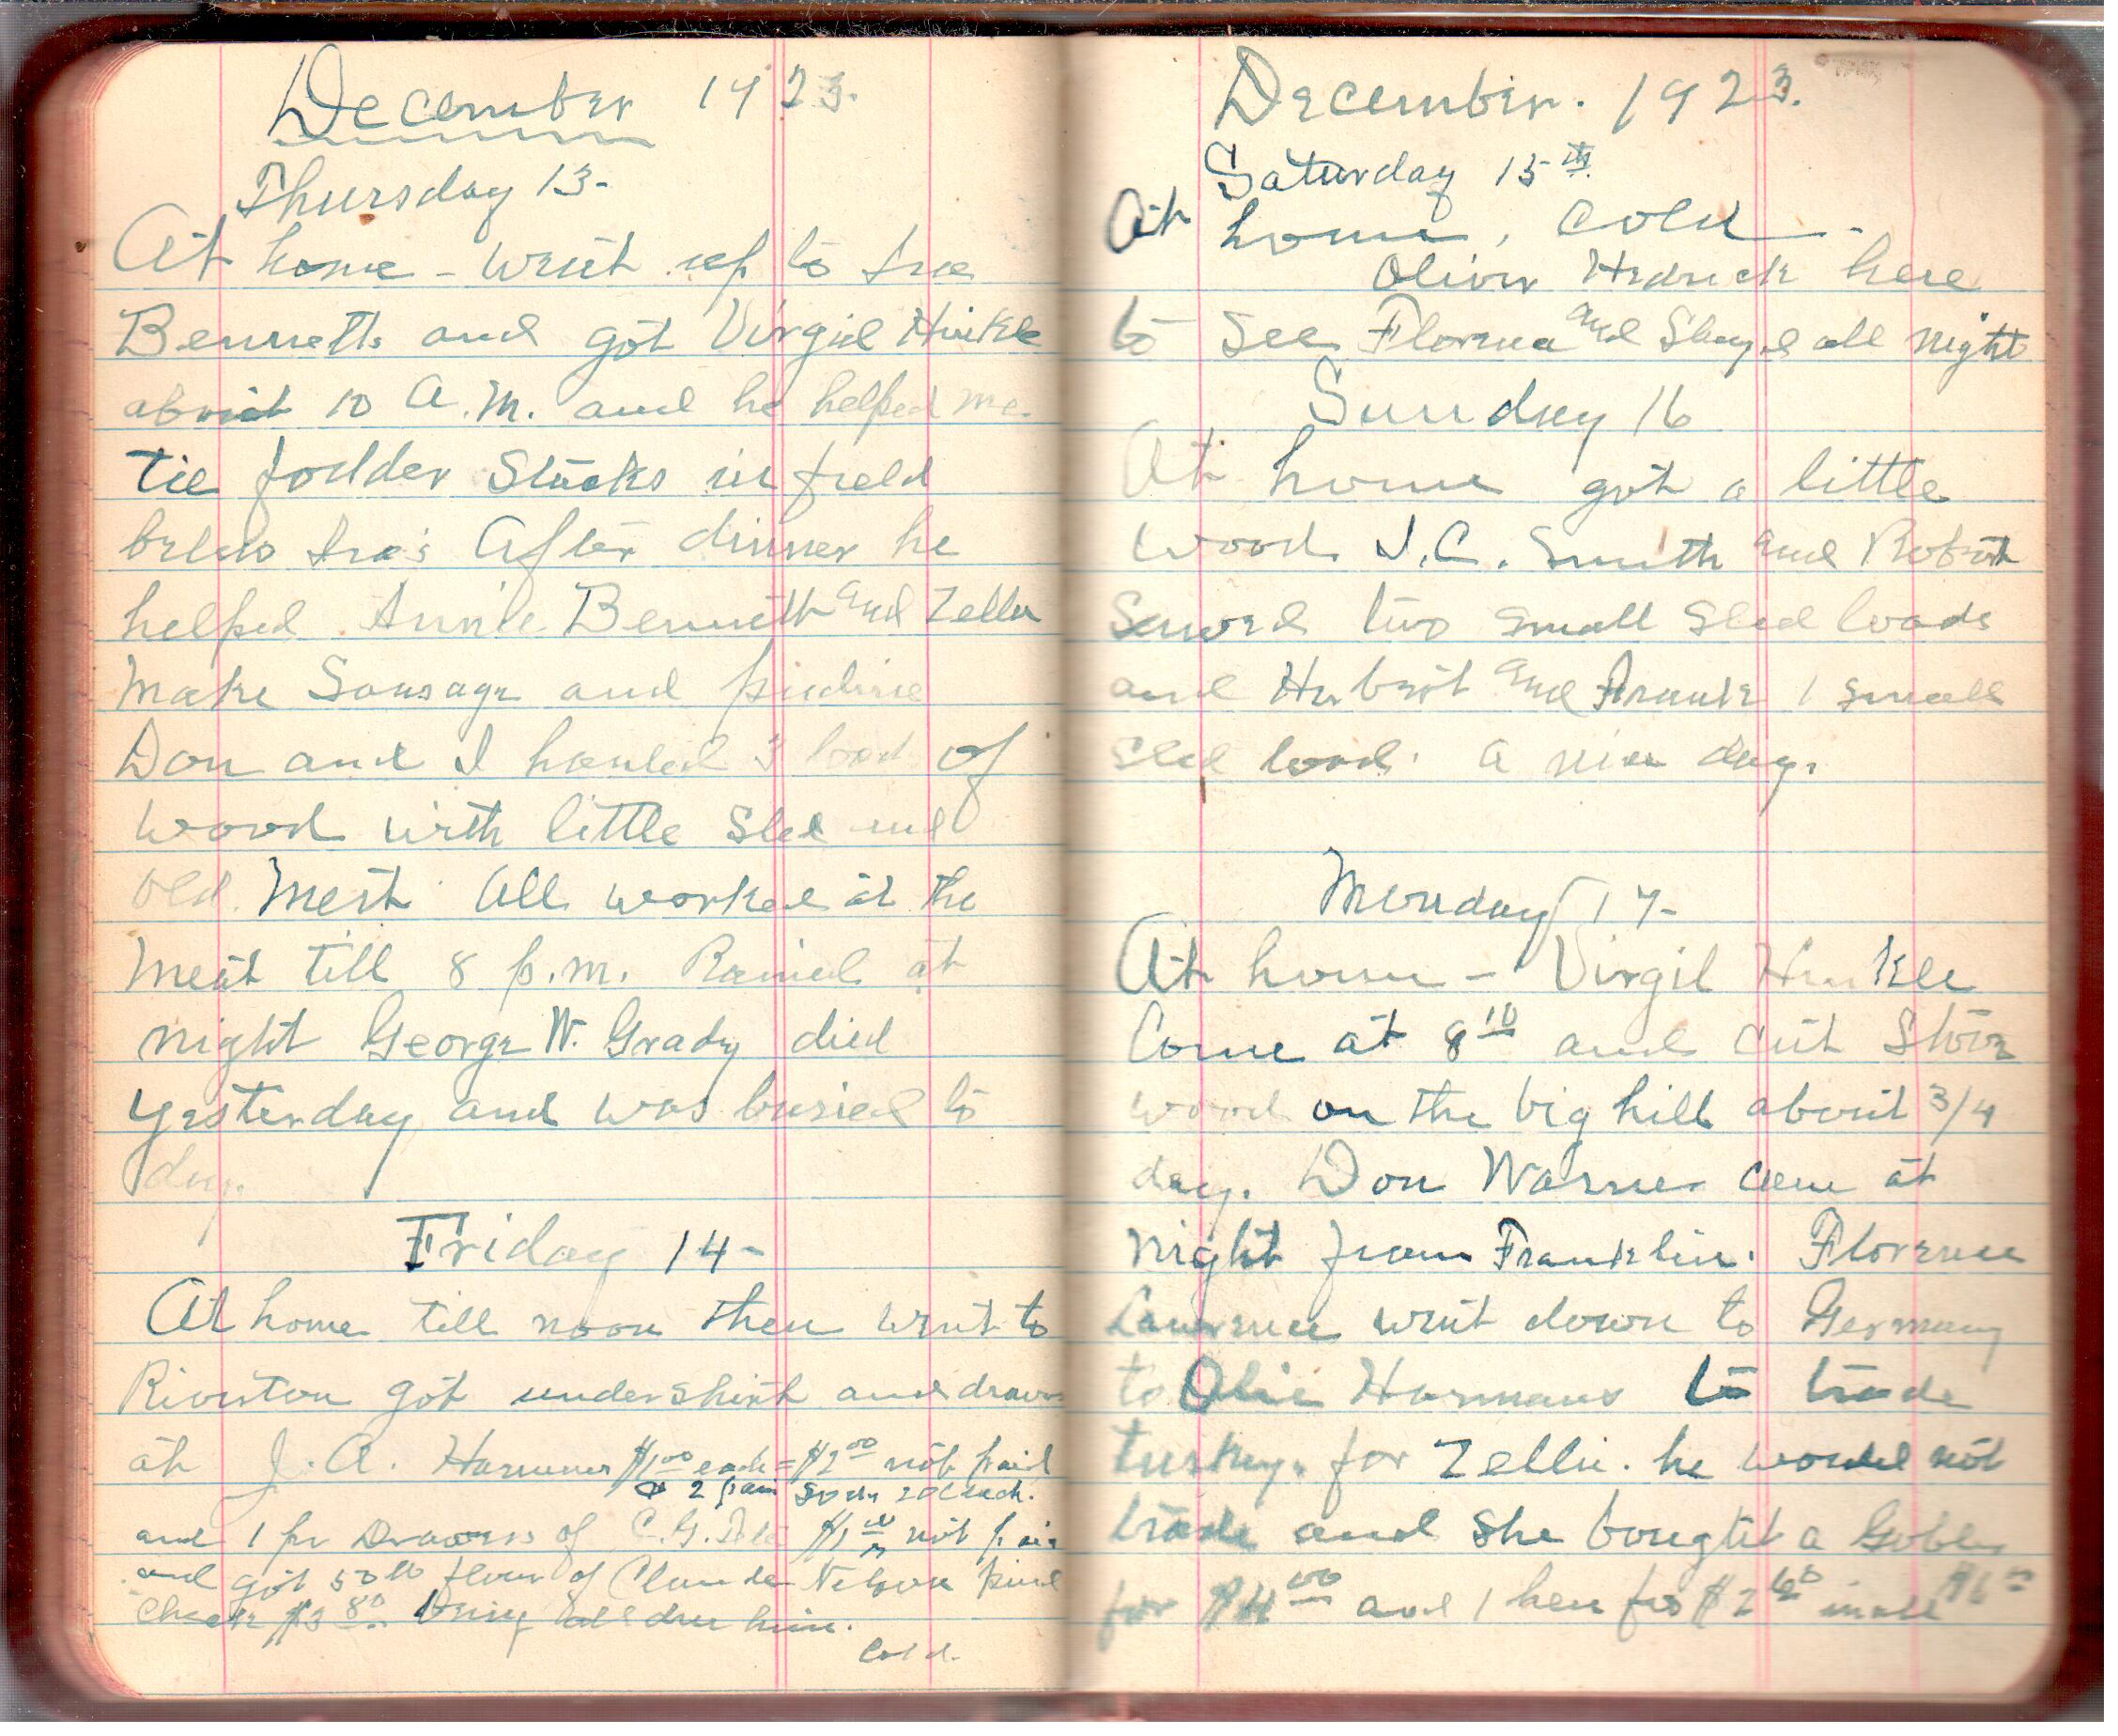 December 1923.
Thursday 13-
At home - went up to Ira
Bennetts and got Virgil Hinkle
about 10 A.M. and he helped me
tie fodder stacks in field
below Ira's After dinner he
helped Annie Bennett and Zella
make Sausage and
Don and I hauled 3 load of
wood with little sled and
old. Meat all worked at the
meat till 8 p.m. Rained at
night George W. Grady died
yesterday and was buried to
day.
Friday 14-
At home till noon then went to
Riverton got undershirt and drawrs
at J. A. Harmans $1.00 each = $2.00 not paid
2 pair 20c each.
and 1 pr Drawers of C.G. $1.00 not paid
and got 50 lb flour of Claude Nelson paid
check $3.80. all due him.
Cold.
December. 1923.
Saturday 15th.
At home, cold.
Oliver Hedrick here
to see Florence and Stayed all night
Sunday 16
At home got a little
wood. J.C. Smith and Robert
two small sled loads
and Herbert and Frank 1 small
sled load. A nice day.
Monday 17-
At home - Virgil Hinkle
Come at 8 10 and cut Stove
wood on the big hill about 3/4
day. Don Warner came at
night from Franklin. Florence
Lawrence went down to Germany
to Olie Harmans to trade
turkeys for Zellie. he would not
trade and she bought a Gobler
for $4.00 and 1 hen for $2.60 in all